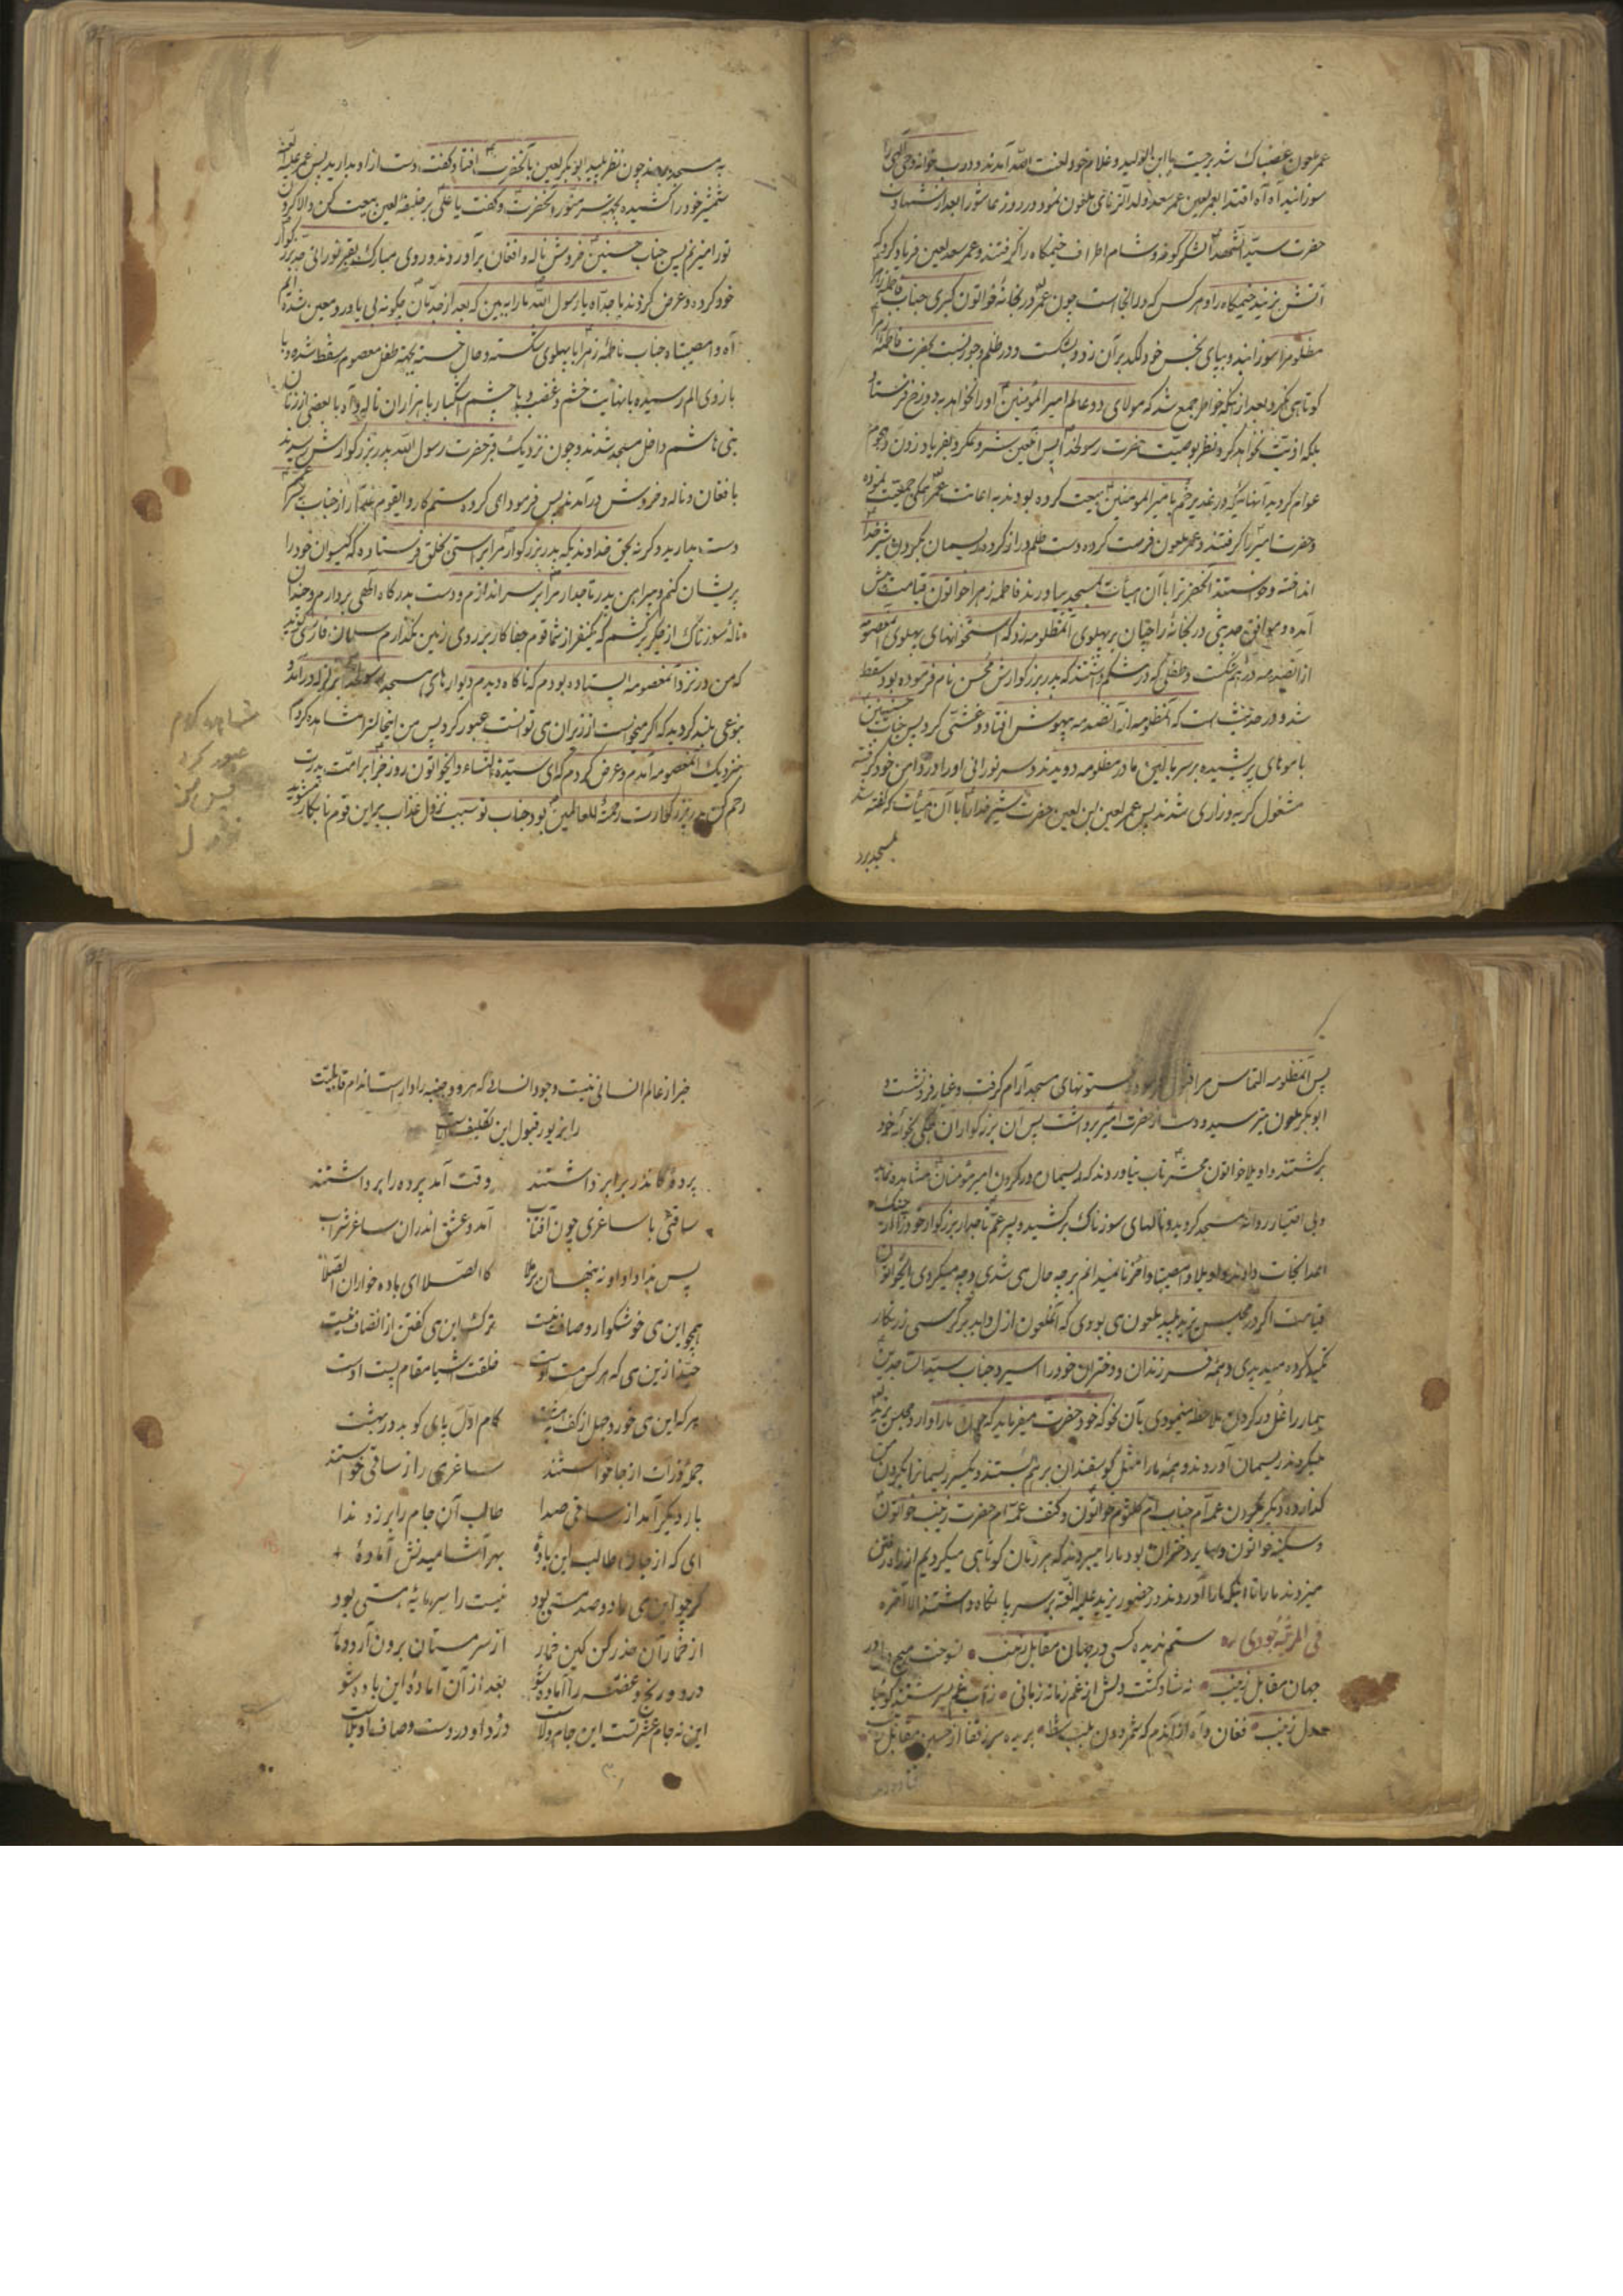 عمر ملعون غضبناک شد برجست با ابن الولید و غلام خود لعنت الله آمدند و درب خانه وحی الهی را
سوزانید آه آه اقتدا بعمر لعین عمر سعد ولد الزنای ملعون نمود در روز عاشورا بعد از شهادت
حضرت سید الشهدا لشکر کوفه و شام اطراف خیمکاه را کرفتند و عمر سعد لعین فریاد کرد که
آتش بزنید خیمکاه را و هر کس که در اینجا است چون عمر در بخانهٔ خواتون کبری جناب فاطمه زهرا
مظلومه را سوزانید و بپای نجس خود لکد بر آن زد و شکست و در ظلم و جور نسبت بحضرت فاطمه
کوتاهی نکرد بعد از آنکه خواطر جمع شد که مولای دو عالم امیر المؤمنین او را نخواهد بدوزخ فرستاد
بلکه اذیت نخواهد کرد نظر بوصیت حضرت رسولخدا پس لعین شروع کرد بفریاد زدن و هجوم
عوام کردید آنهائیکه در غدیر خم با امیر المومنین بیعت کرده بودند به اعانت عمر همکی جمعیت نموده
و حضرت امیر را کرفتند و عمر ملعون فرصت کرده دست ظلم دراز کرد و ریسمان بکردن شیر خدا
انداخته و خواستند آنحضرترا با آن هیأت بمسجد بیاورند فاطمه زهرا خواتون قیامت پیش
آمده و موافق حدیثی در بخانه را چنان بر پهلوی آنمظلومه زد که استخوانهای پهلوی معصومه
از آنصدمه در هم شکست و طفلی که در شکم داشتند که پدر بزرکوارش محسن نام فرموده بود سقط
شد و در حدیث است که آنمظلومه از آنصدمه بیهوش افتاد و غشی کرد پس جناب حسنین
با موهای پریشیده بر سر بالین مادر مظلومه دویدند و سر نورانی او را در دامن خود کرفته
مشغول کریه و زاری شدند پس عمر لعین بن لعین حضرت شیر خدا را با آن هیأت که کفته شد
بمسجد برد
به مسجد بردند چون نظر پلید ابو بکر لعین بآنحضرت افتاد کفت دست از او بدارید پس عمر علیه اللعنه
شمشیر خود را کشیده بجهة سر منور آنحضرت و کفت یا علی بر خلیفهٔ لعین بیعت کن والا کردن
تو را میزنم پس جناب حسنین خروش ناله و افغان برآوردند و روی مبارک بقبر نورانی جد بزرکوار
خود کرده و عرض کردند یا جداه یا رسول الله ما را ببین که بعد از جدمان چکونه بی یاور و معین شده‌ایم
آه وا مصیبتاه جناب فاطمهٔ زهرا با پهلوی شکسته و حال خسته بجهة طفل معصوم سقط شده و با
بازوی الم رسیده با نهایت خشم و غضب و با چشم اشکبار با هزاران ناله و آه با بعضی از زنان
بنی هاشم داخل مسجد شدند و چون نزدیک قبر حضرت رسول الله پدر بزرکوارش رسیدند
با فغان و ناله و خروش در آمدند پس فرمود ای کروه ستمکار و ایقوم غدار از جناب پسر عم
دست بدارید و کرنه بحق خداوندیکه پدر بزرکوار مرا براستی بخلق فرستاده که کیسوان خود را
پریشان کنم و پیراهن پدر تاجدار مرا بر سر اندازم و دست بدرکاه الهی بردارم و چندان
نالهٔ سوزناک از جکر برکشم که یکنفر از شما قوم جفا کار بر روی زمین نکذارم سلمان فارسی کوید
که من در نزد آنمعصومه ایستاده بودم که ناکاه دیدم دیوارهای مسجد رسولخدا بلرزه درآمد و
بنوعی بلند کردید که اکر میخواست از زیران می توانست عبور کرد پس من اینحالرا مشاهده کردم
بنزدیک آنمعصومه آمدم و عرض کردم که ای سیدة النساء و ایخواتون روز جزا بر امت پدرت
رحم کن پدر بزرکوارت رحمة للعالمین بود جناب تو سبب نزول عذاب بر این قوم نابکار نشوید
عبور کرد
پس من
پس آنمظلومه التماس مرا قبول فرمود و ستونهای مسجد آرام کرفت و غبار فرونشست و
ابو بکر ملعون بترسید و دست از حضرت امیر برداشت پس آن بزرکواران همکی بخانه خود
برکشتند واویلا خواتون محشر تاب نیاوردند که ریسمان در کردن امیر مؤمنان مشاهده نماید
و بی اختیار روانه مسجد کردید و نالهای سوزناک برکشید و پسر عم تاجدار بزرکوار خود را از چنک
اعدا نجات دادند واویلا وا مصیبتا وا حزنا نمیدانم بر چه حال می شدی و چه میکردی ایخواتون
قیامت اکر در مجلس یزید پلید ملعون می بودی که آنملعون ازل و ابد بر کرسی زرنکار
تکیه کرده میدیدی و همه فرزندان و دختران خود را اسیر و جناب سید الساجدین
بیمار را غل در کردن ملاحظه مینمودی بآن نحو که خود حضرت میفرماید که چون ما را وارد مجلس یزید
میکردند ریسمان آوردند و همه ما را مثل کوسفندان بر هم بستند و یکسر ریسمانرا بکردن من
کذارده و دیکر بکردن عمه‌ام جناب ام کلثوم خواتون و کتف عمه‌ام حضرت زینب خواتون
و سکینه خواتون و سایر دختران بود ما را میبردند که هر زمان کوتاهی میکردیم از راه رفتن
میزدند ما را تا اینکه ما را آوردند در حضور یزید علیه اللعنه بر سر پا نکاه داشتند الا آخره
فی المرثیه جودی ره ستم ندیده کسی در جهان مقابل زینب نسوخت هیچ دلی در
جهان مقابل زینب نه شاد کشت دلش از غم زمانه زمانی ز آب غم بسرشتند کوئیا
کل زینب فغان و آه از آندم که شمر دون بلب شط بریده سر ز قفا از حسین مقابل زینب
خبر از عالم انسانی نیست وجود انسانی که هر دو جنبه را داراست اندام قابلیت
را بزیور قبول این تکلیف
پردهٔ کاندر برابر داشتند وقت آمد پرده را برداشتند
ساقئی با ساغری چون آفتاب آمد و عشق اندران ساغر شراب
پس ندا داد او نه پنهان برملا کالصلا ای باده خواران الصلا
همچو این می خوشکوار و صاف نیست ترک این می کفتن از انصاف نیست
حبذا زین می که هر کس مست اوست خلقت اشیا مقام پست اوست
هر که این می خورد جهل از کف بهشت کام اول پای کوبد در بهشت
جمله ذرات از جا خواستند ساغری را ز ساقی خواستند
بار دیکر آمد از ساقی صدا طالب آن جام را بر زد ندا
ای که از جان طالب این بادهٔ بهر آشامیدنش آمادهٔ
کرچه این می را دو صد مستی بود نیست را سرمایهٔ هستی بود
از خمار آن حذر کن کین خمار از سر مستان برون آرد دمار
درد و رنج و غصه را آماده شو بعد از آن آمادهٔ این باده شو
این نه جام عشرتست این جام ولاست درد او درد است و صاف او بلاست